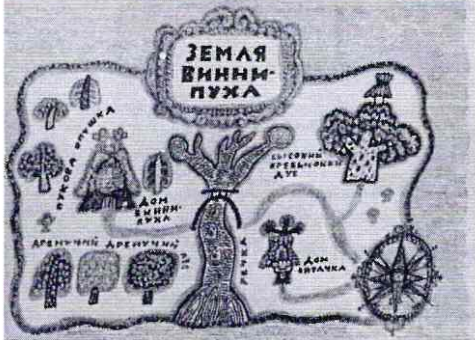 ЗЕМЛЯ
ВИННИ-
ПУХА
ПУХОВА ОПУШКА
ДОМ
ВИННИ-
ПУХА
ВЫСОКИЙ
ПРЕВЫСОКИЙ
ДУБ
ДРЕМУЧИЙ ДРЕМУЧИЙ
ЛЕС
РЕЧКА
ДОМ
ПЯТАЧКА